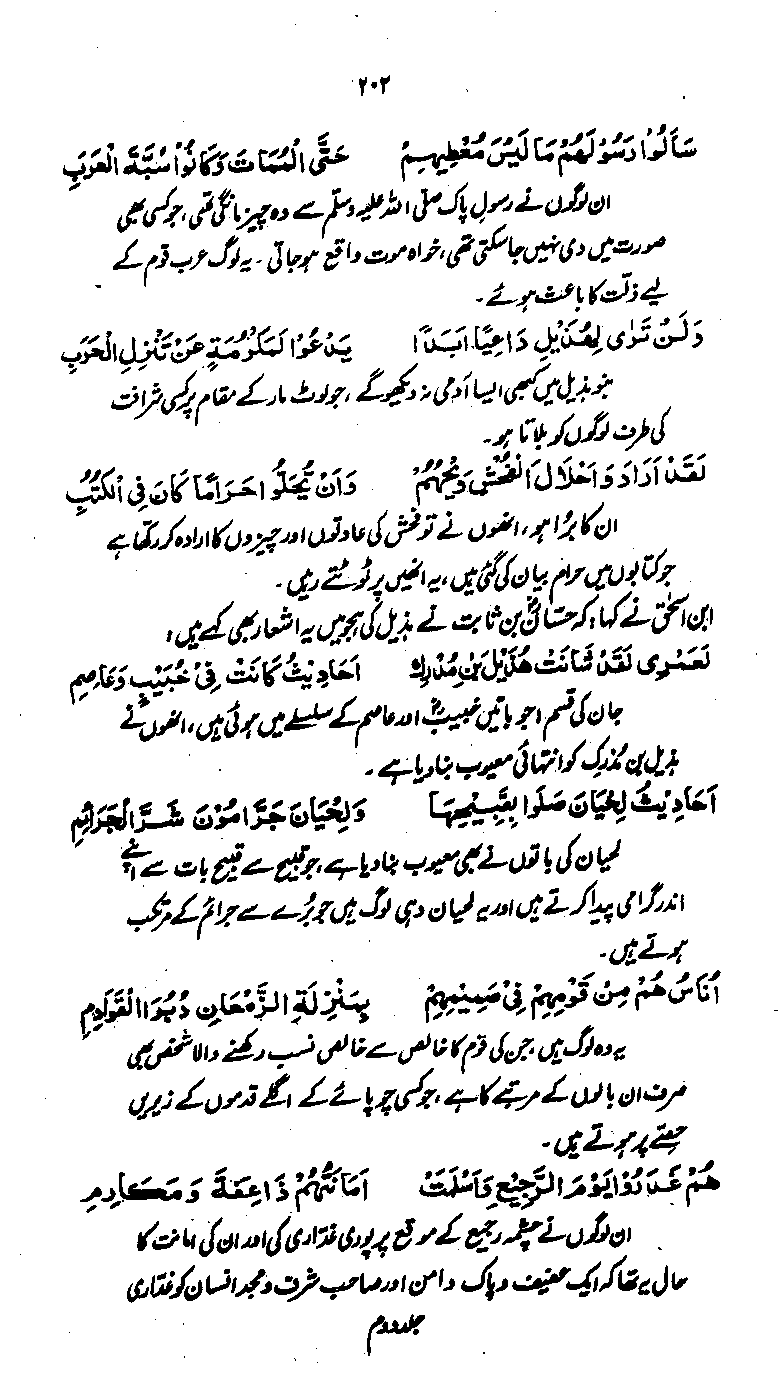 ۲۰۲
سَأَلُوْا رَسُوْلَهُمْ مَا لَیْسَ مُعْطِیْهِمْ حَتَّی الْمُمَاتَ وَکَانُوْا سُبَّةَ الْعَرَبِ
ان لوگوں نے رسولِ پاک صلی اللہ علیہ وسلم سے وہ چیز مانگی تھی، جو کسی بھی
صورت میں دی نہیں جا سکتی تھی، خواہ موت واقع ہو جاتی۔ یہ لوگ عرب قوم کے
لیے ذلّت کا باعث ہوئے۔
وَلَنْ تَرٰی لِهُذَیْلٍ دَاعِیًا اَبَدًا یَدْعُوْا لِمَکْرُمَةٍ عَنْ تَنْزِلِ الْحَرَبِ
بنو ہذیل میں کبھی ایسا آدمی نہ دیکھو گے، جو لوٹ مار کے مقام پر کسی شرافت
کی طرف لوگوں کو بلاتا ہو۔
لَقَدْ اَرَادَ وَاحْلَالَ الْفُحْشِ وَیْحَهُمُ وَاَنْ یُّحِلُّوا حَرَامًا کَانَ فِی الْکُتُبِ
ان کا بُرا ہو، انھوں نے تو فحش کی عادتوں اور چیزوں کا ارادہ کر رکھا ہے
جو کتابوں میں حرام بیان کی گئی ہیں، یہ انھیں پر ٹوٹتے رہیں۔
ابن اسحٰق نے کہا: کہ حسّانؓ بن ثابت نے ہذیل کی ہجو میں یہ اشعار بھی کہے ہیں:
لَعَمْرِی لَقَدْ شَانَتْ هُذَیْلَ بْنَ مُدْرِكَ اَحَادِیْثُ کَانَتْ فِیْ خُبَیْبٍ وَعَاصِمِ
جان کی قسم! جو باتیں خبیبؓ اور عاصم کے سلسلے میں ہوئی ہیں، انھوں نے
ہذیل بن مُدرک کو انتہائی معیوب بنا دیا ہے۔
اَحَادِیْثُ لِحْیَانَ صَلَوا بِقَبِیْحِهَا وَلِحْیَانَ جَرَّامُوْنَ شَرَّ الْجَرَائِمِ
لحیان کی باتوں نے بھی معیوب بنا دیا ہے، جو قبیح سے قبیح بات سے اپنے
اندر گرمی پیدا کرتے ہیں اور یہ لحیان وہی لوگ ہیں جو بُرے سے جرائم کے مرتکب
ہوتے ہیں۔
اُنَاسٌ هُمْ مِنْ قَوْمِهِمْ فِیْ صَمِیْمِهِمْ بِمَنْزِلَةِ الزَّمْعَانِ دُبُرَ الْقَوَادِمِ
یہ وہ لوگ ہیں، جن کی قوم کا خالص سے خالص نسب رکھنے والا شخص بھی
صرف ان بالوں کے مرتبے کا ہے، جو کسی چوپائے کے اگلے قدموں کے زیریں
حِصّے پر ہوتے ہیں۔
هُمُ غَدَرُوْا یَوْمَ الرَّجِیْعِ وَاَسْلَمَتْ اَمَانَتُهُمْ ذَا عِفَّةَ وَمَکَارِمِ
ان لوگوں نے چشمہ رجیع کے موقع پر پوری غدّاری کی اور ان کی امانت کا
حال یہ تھا کہ ایک عفیف و پاک دامن اور صاحبِ شرف و مجد انسان کو غدّاری
جلد دوم